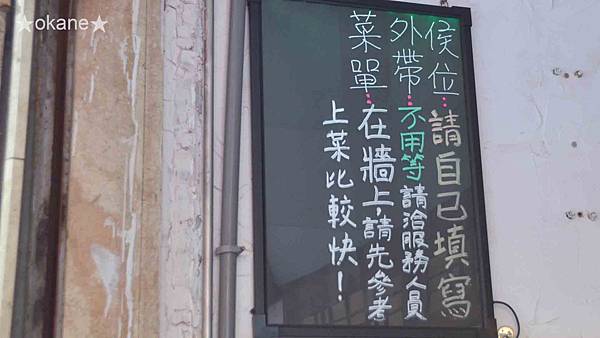 ★okane★
侯位:請自己填寫
外帶:不用等請洽服務人員
菜單:在牆上,請先參考
上菜比較快!